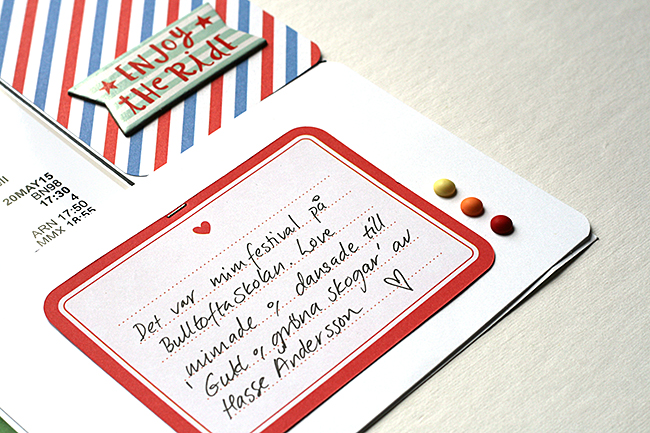 ENJOY
the RIDE
20MAY15
BN98
17:30
4
ARN 17:50
MMX 18:55
Det var mimfestival på
Bulltoftaskolan. Love
mimade % dansade till
'Guld % gröna skogar' av
Hasse Andersson ♡